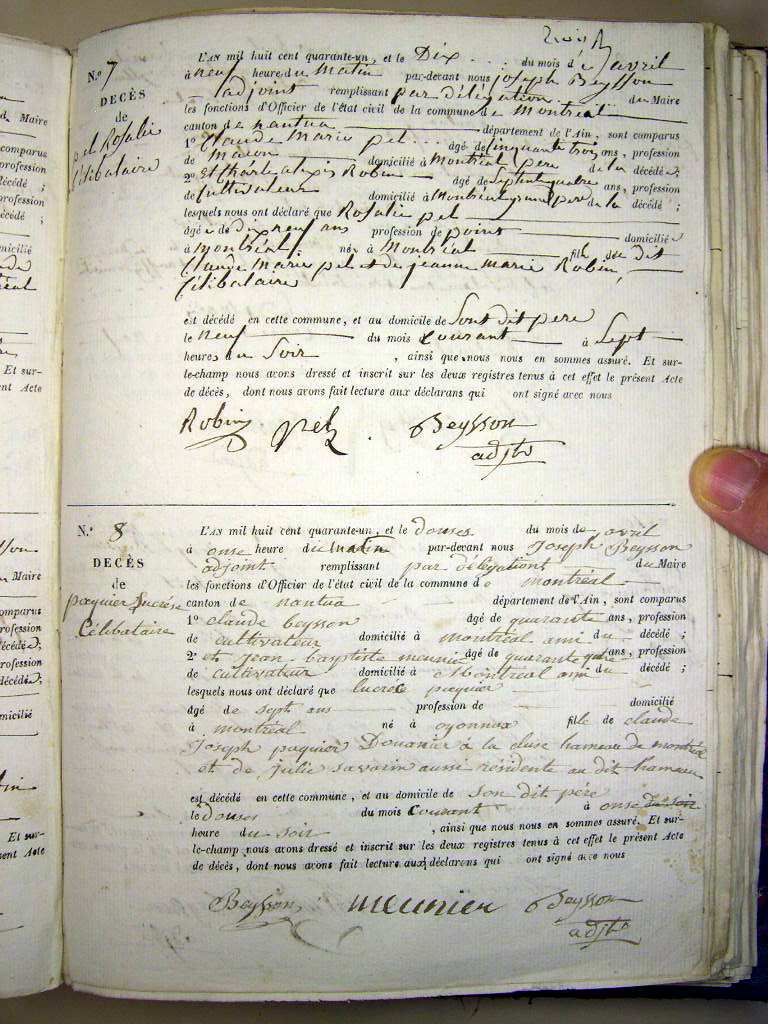 N.o 7
DÉCÈS
de
pel Rosalie
Célibataire
L'AN mil huit cent quarante-un, et le Dix du mois d'avril
à neuf heure du Matin par-devant nous joseph Beysson
adjoint remplissant par délégation du Maire
les fonctions d'Officier de l'état civil de la commune de Montréal
canton de nantua département de l'Ain, sont comparus
1o Claude Marie pel âgé de Cinquante trois ans, profession
de Macon domicilié à Montréal père de la décédée ;
2o et Charle alexis Robin âgé de Septente quatre ans, profession
de Cultivateur domicilié à Montréal grand père de la décédé ;
lesquels nous ont déclaré que Rosalie pel
âgée de dix neuf ans profession de point domiciliée
à Montréal née à Montréal fille de dit
Claude Marie pel et de jeanne marie Robin,
Célibataire
est décédé en cette commune, et au domicile de Sont dit père
le neuf du mois Courant à Sept
heures du Soir , ainsi que nous nous en sommes assuré. Et sur-
le-champ nous avons dressé et inscrit sur les deux registres tenus à cet effet le présent Acte
de décès, dont nous avons fait lecture aux déclarans qui ont signé avec nous
Robin pel Beysson
adjt
N.o 8
DÉCÈS
de
paquier Lucrèse
Célibataire
L'AN mil huit cent quarante-un, et le douses du mois de avril
à onse heure du matin par-devant nous Joseph Beysson
adjoint remplissant par délégations du Maire
les fonctions d'Officier de l'état civil de la commune de montréal
canton de nantua département de l'Ain, sont comparus
1o claude beysson âgé de quarante ans, profession
de cultivateur domicilié à montréal ami du décédé ;
2o et jean baptiste meunier âgé de quarante quatre ans, profession
de cultivateur domicilié à Montréal ami du décédé ;
lesquels nous ont déclaré que lucrèce paquier
âgé de sept ans profession de domicilié
à montréal né à oyonnax fille de claude
Joseph paquier Douanier à la cluse hameau de montréal
et de julie savarin aussi résidente au dit hameau
est décédé en cette commune, et au domicile de son dit père
le douses du mois Courant à onse du soir
heure du soir , ainsi que nous nous en sommes assuré. Et sur-
le-champ nous avons dressé et inscrit sur les deux registres tenus à cet effet le présent Acte
de décès, dont nous avons fait lecture aux déclarans qui ont signé avec nous
Beysson meunier Beysson
adjt